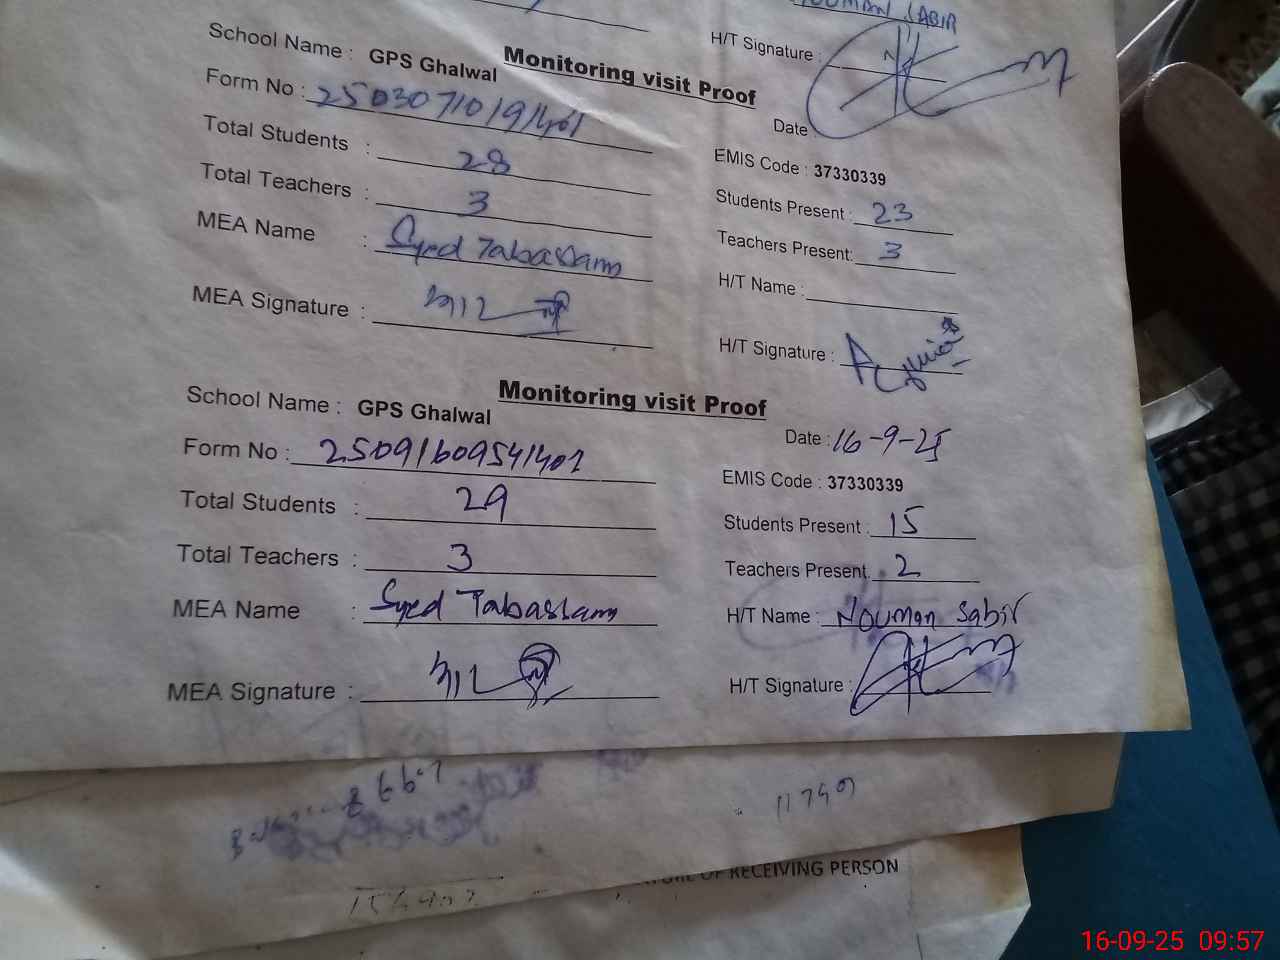 NOUMAN SABIR
H/T Signature :
Monitoring visit Proof
School Name : GPS Ghalwal
Date :
Form No : 25030710191401
EMIS Code : 37330339
Total Students : 28
Students Present : 23
Total Teachers : 3
Teachers Present: 3
MEA Name : Syed Tabassam
H/T Name :
MEA Signature :
H/T Signature :
Monitoring visit Proof
School Name : GPS Ghalwal
Date : 16-9-25
Form No : 25091609541401
EMIS Code : 37330339
Total Students : 29
Students Present : 15
Total Teachers : 3
Teachers Present: 2
MEA Name : Syed Tabassam
H/T Name : Nouman Sabir
MEA Signature :
H/T Signature :
OF RECEIVING PERSON
16-09-25 09:57